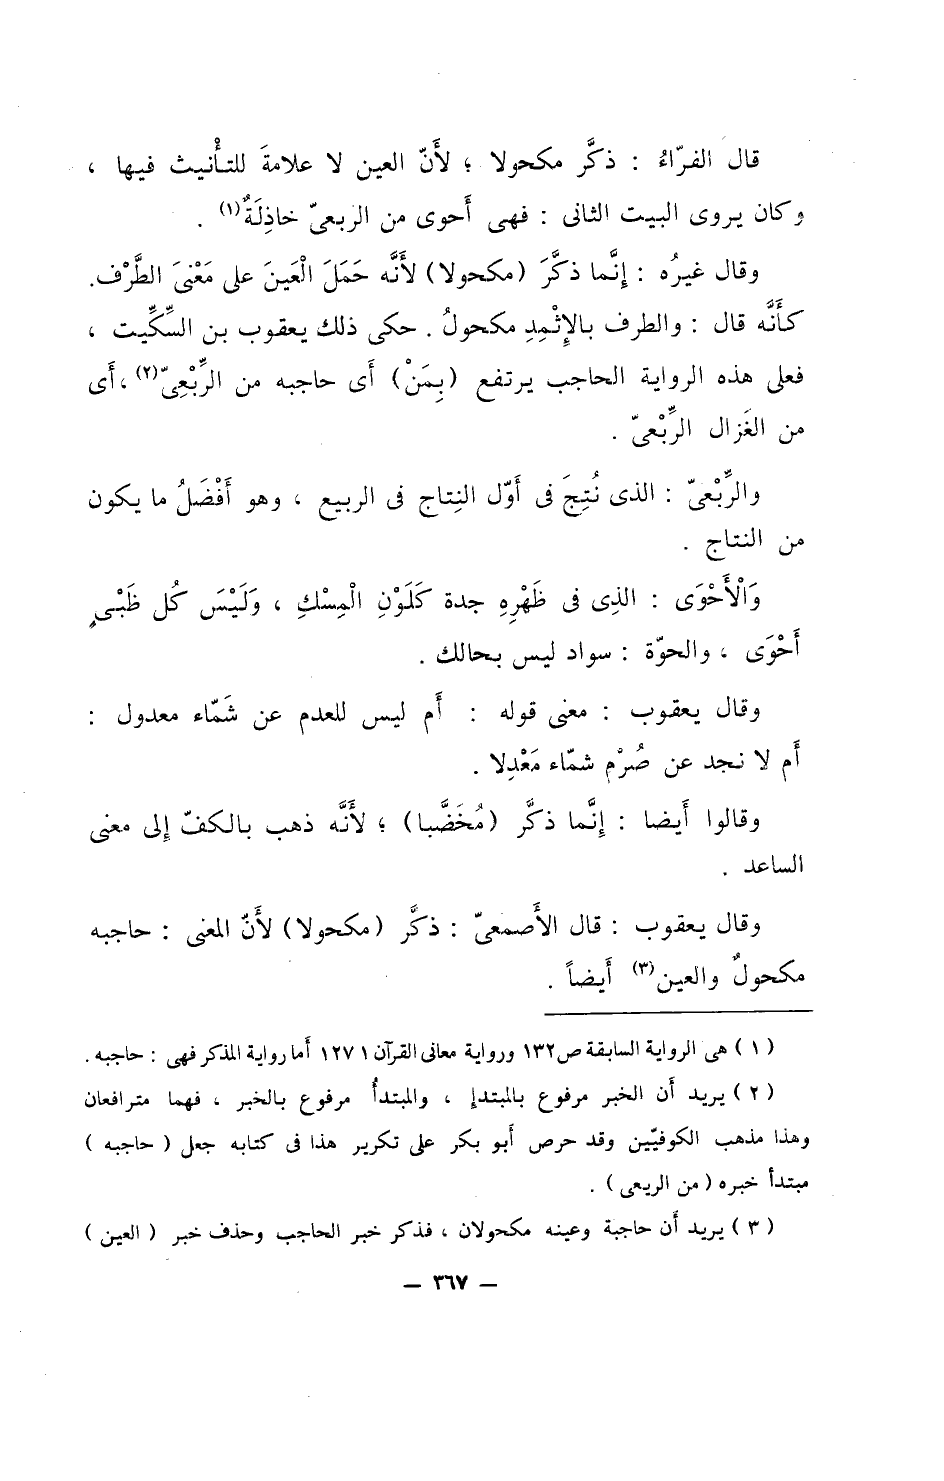 قال الفرّاءُ : ذكَّر مكحولا ؛ لأَنّ العين لا علامةَ للتأْنيث فيها ،
وكان يروى البيت الثانى : فهى أَحوى من الربعىّ خاذِلَةٌ(١) .
وقال غيرُه : إنَّما ذكَّرَ (مكحولا) لأَنَّه حَمَلَ الْعَينَ على مَعْنىَ الطَّرْف.
كأَنَّه قال : والطرف بالإِثْمِدِ مكحولُ . حكى ذلك يعقوب بن السِّكِّيت ،
فعلى هذه الرواية الحاجب يرتفع (بِمَنْ) أَى حاجبه من الرِّبْعِىّ(٢) ، أَى
من الغَزال الرِّبْعىّ .
والرِّبْعىّ : الذى نُتِجَ فى أوّل النِتاج فى الربيع ، وهو أَفْضَلُ ما يكون
من النتاج .
وَالْأَحْوَى : الذِى فى ظَهْرِهِ جدة كَلَوْنِ الْمِسْكِ ، وَلَيْسَ كُل ظَبْىٍ
أَحْوَى ، والحوّة : سواد ليس بحالك .
وقال يعقوب : معنى قوله : أَم ليس للعدم عن شَمّاء معدول :
أَم لا نجد عن صُرْم شمّاء مَعْدِلا .
وقالوا أَيضا : إنَّما ذكَّر (مُخَضَّبا) ؛ لأَنَّه ذهب بالكفّ إلى معنى
الساعد .
وقال يعقوب : قال الأَصمعىّ : ذكَّر (مكحولا) لأَنّ المعنى : حاجبه
مكحولٌ والعين(٣) أَيضاً .
( ١ ) هى الرواية السابقة ص١٣٢ ورواية معانى القرآن ١٢٧١ أما رواية المذكر فهى : حاجبه .
( ٢ ) يريد أن الخبر مرفوع بالمبتدإ ، والمبتدأ مرفوع بالخبر ، فهما مترافعان
وهذا مذهب الكوفيّين وقد حرص أبو بكر على تكرير هذا فى كتابه جعل ( حاجبه )
مبتدأ خبره ( من الربعى ) .
( ٣ ) يريد أن حاجبة وعينه مكحولان ، فذكر خبر الحاجب وحذف خبر ( العين )
– ٣٦٧ –